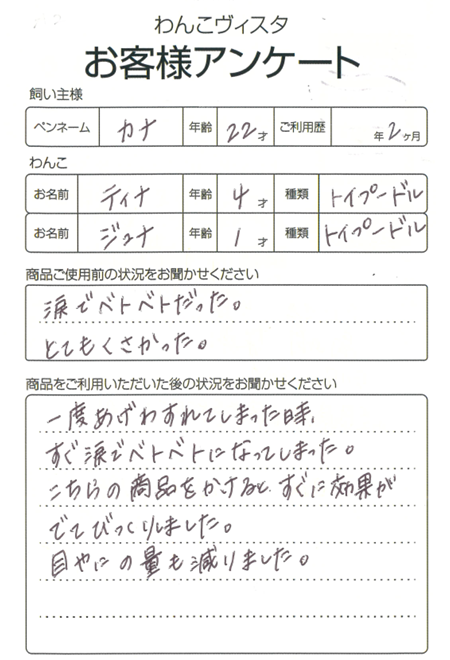 わんこヴィスタ
お客様アンケート
飼い主様
ペンネーム カナ 年齢 22才 ご利用歴 年2ヶ月
わんこ
お名前 ティナ 年齢 4才 種類 トイプードル
お名前 ジュナ 年齢 1才 種類 トイプードル
商品ご使用前の状況をお聞かせください
涙でベトベトだった。
とてもくさかった。
商品をご利用いただいた後の状況をお聞かせください
一度あげわすれてしまった時、
すぐ涙でベトベトになってしまった。
こちらの商品をかけると、すぐに効果が
でてびっくりしました。
目やにの量も減りました。